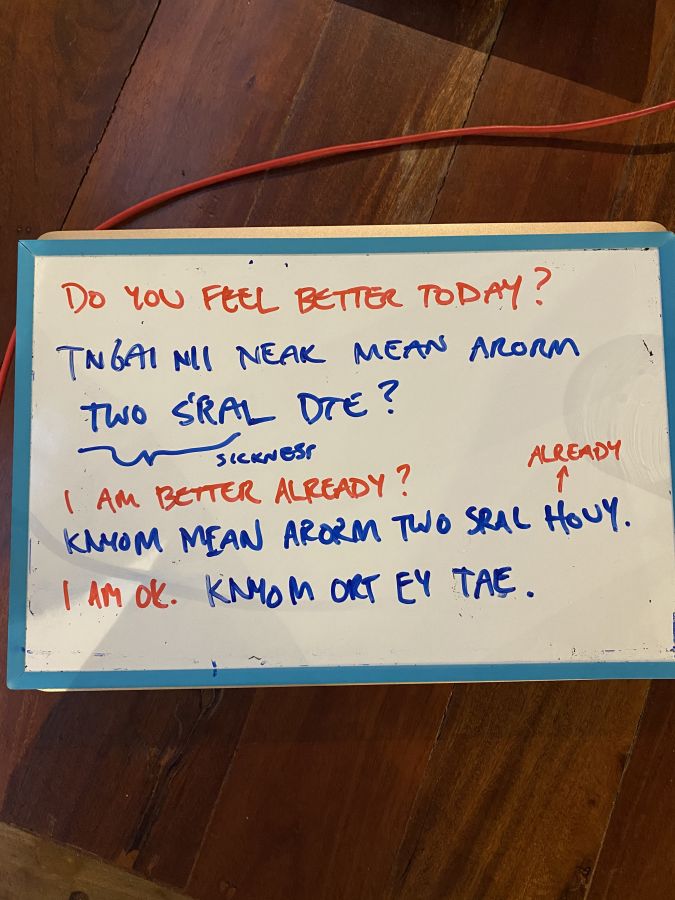 DO YOU FEEL BETTER TODAY?
TNGAI NII NEAK MEAN ARORM
TWO SRAL DTE?
SICKNESS
ALREADY
I AM BETTER ALREADY?
KNYOM MEAN ARORM TWO SRAL HOUY.
I AM OK. KNYOM ORT EY TAE.